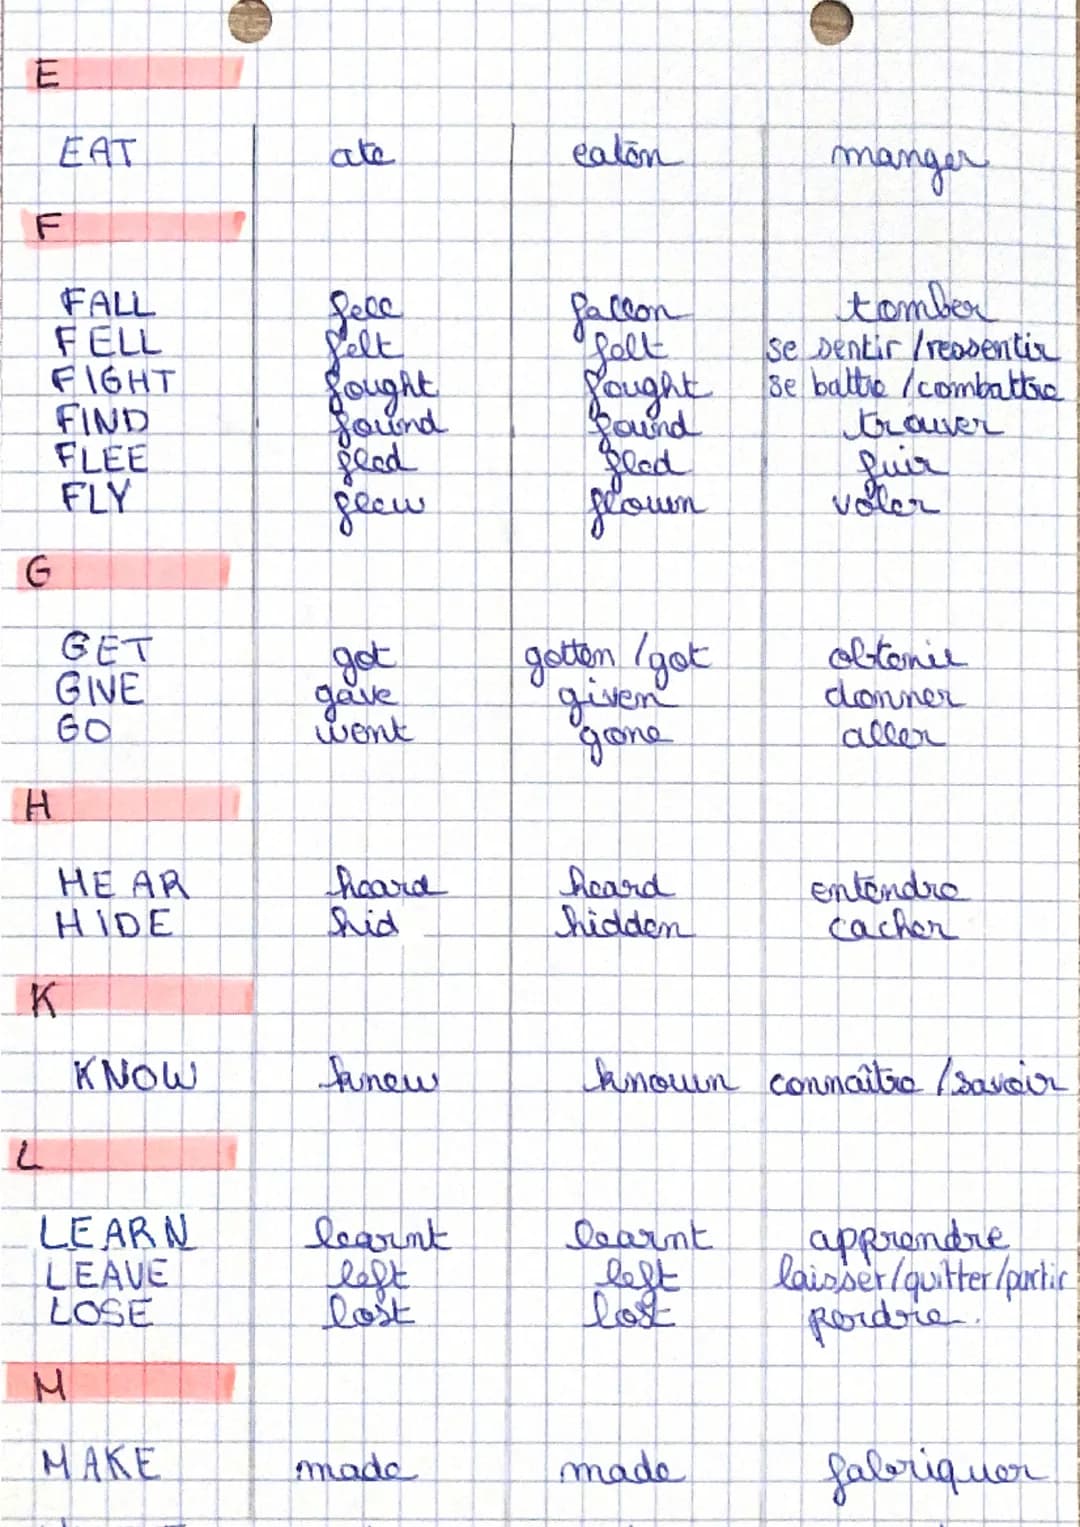 E
EAT ate eaten manger
F
FALL fell fallen tomber
FELL felt felt se sentir / ressentir
FIGHT fought fought se battre / combattre
FIND found found trouver
FLEE fled fled fuir
FLY flew flown voler
G
GET got gotten / got obtenir
GIVE gave given donner
GO went gone aller
H
HEAR heard heard entendre
HIDE hid hidden cacher
K
KNOW knew known connaître / savoir
L
LEARN learnt learnt apprendre
LEAVE left left laisser/quitter/partir
LOSE lost lost perdre.
M
MAKE made made fabriquer